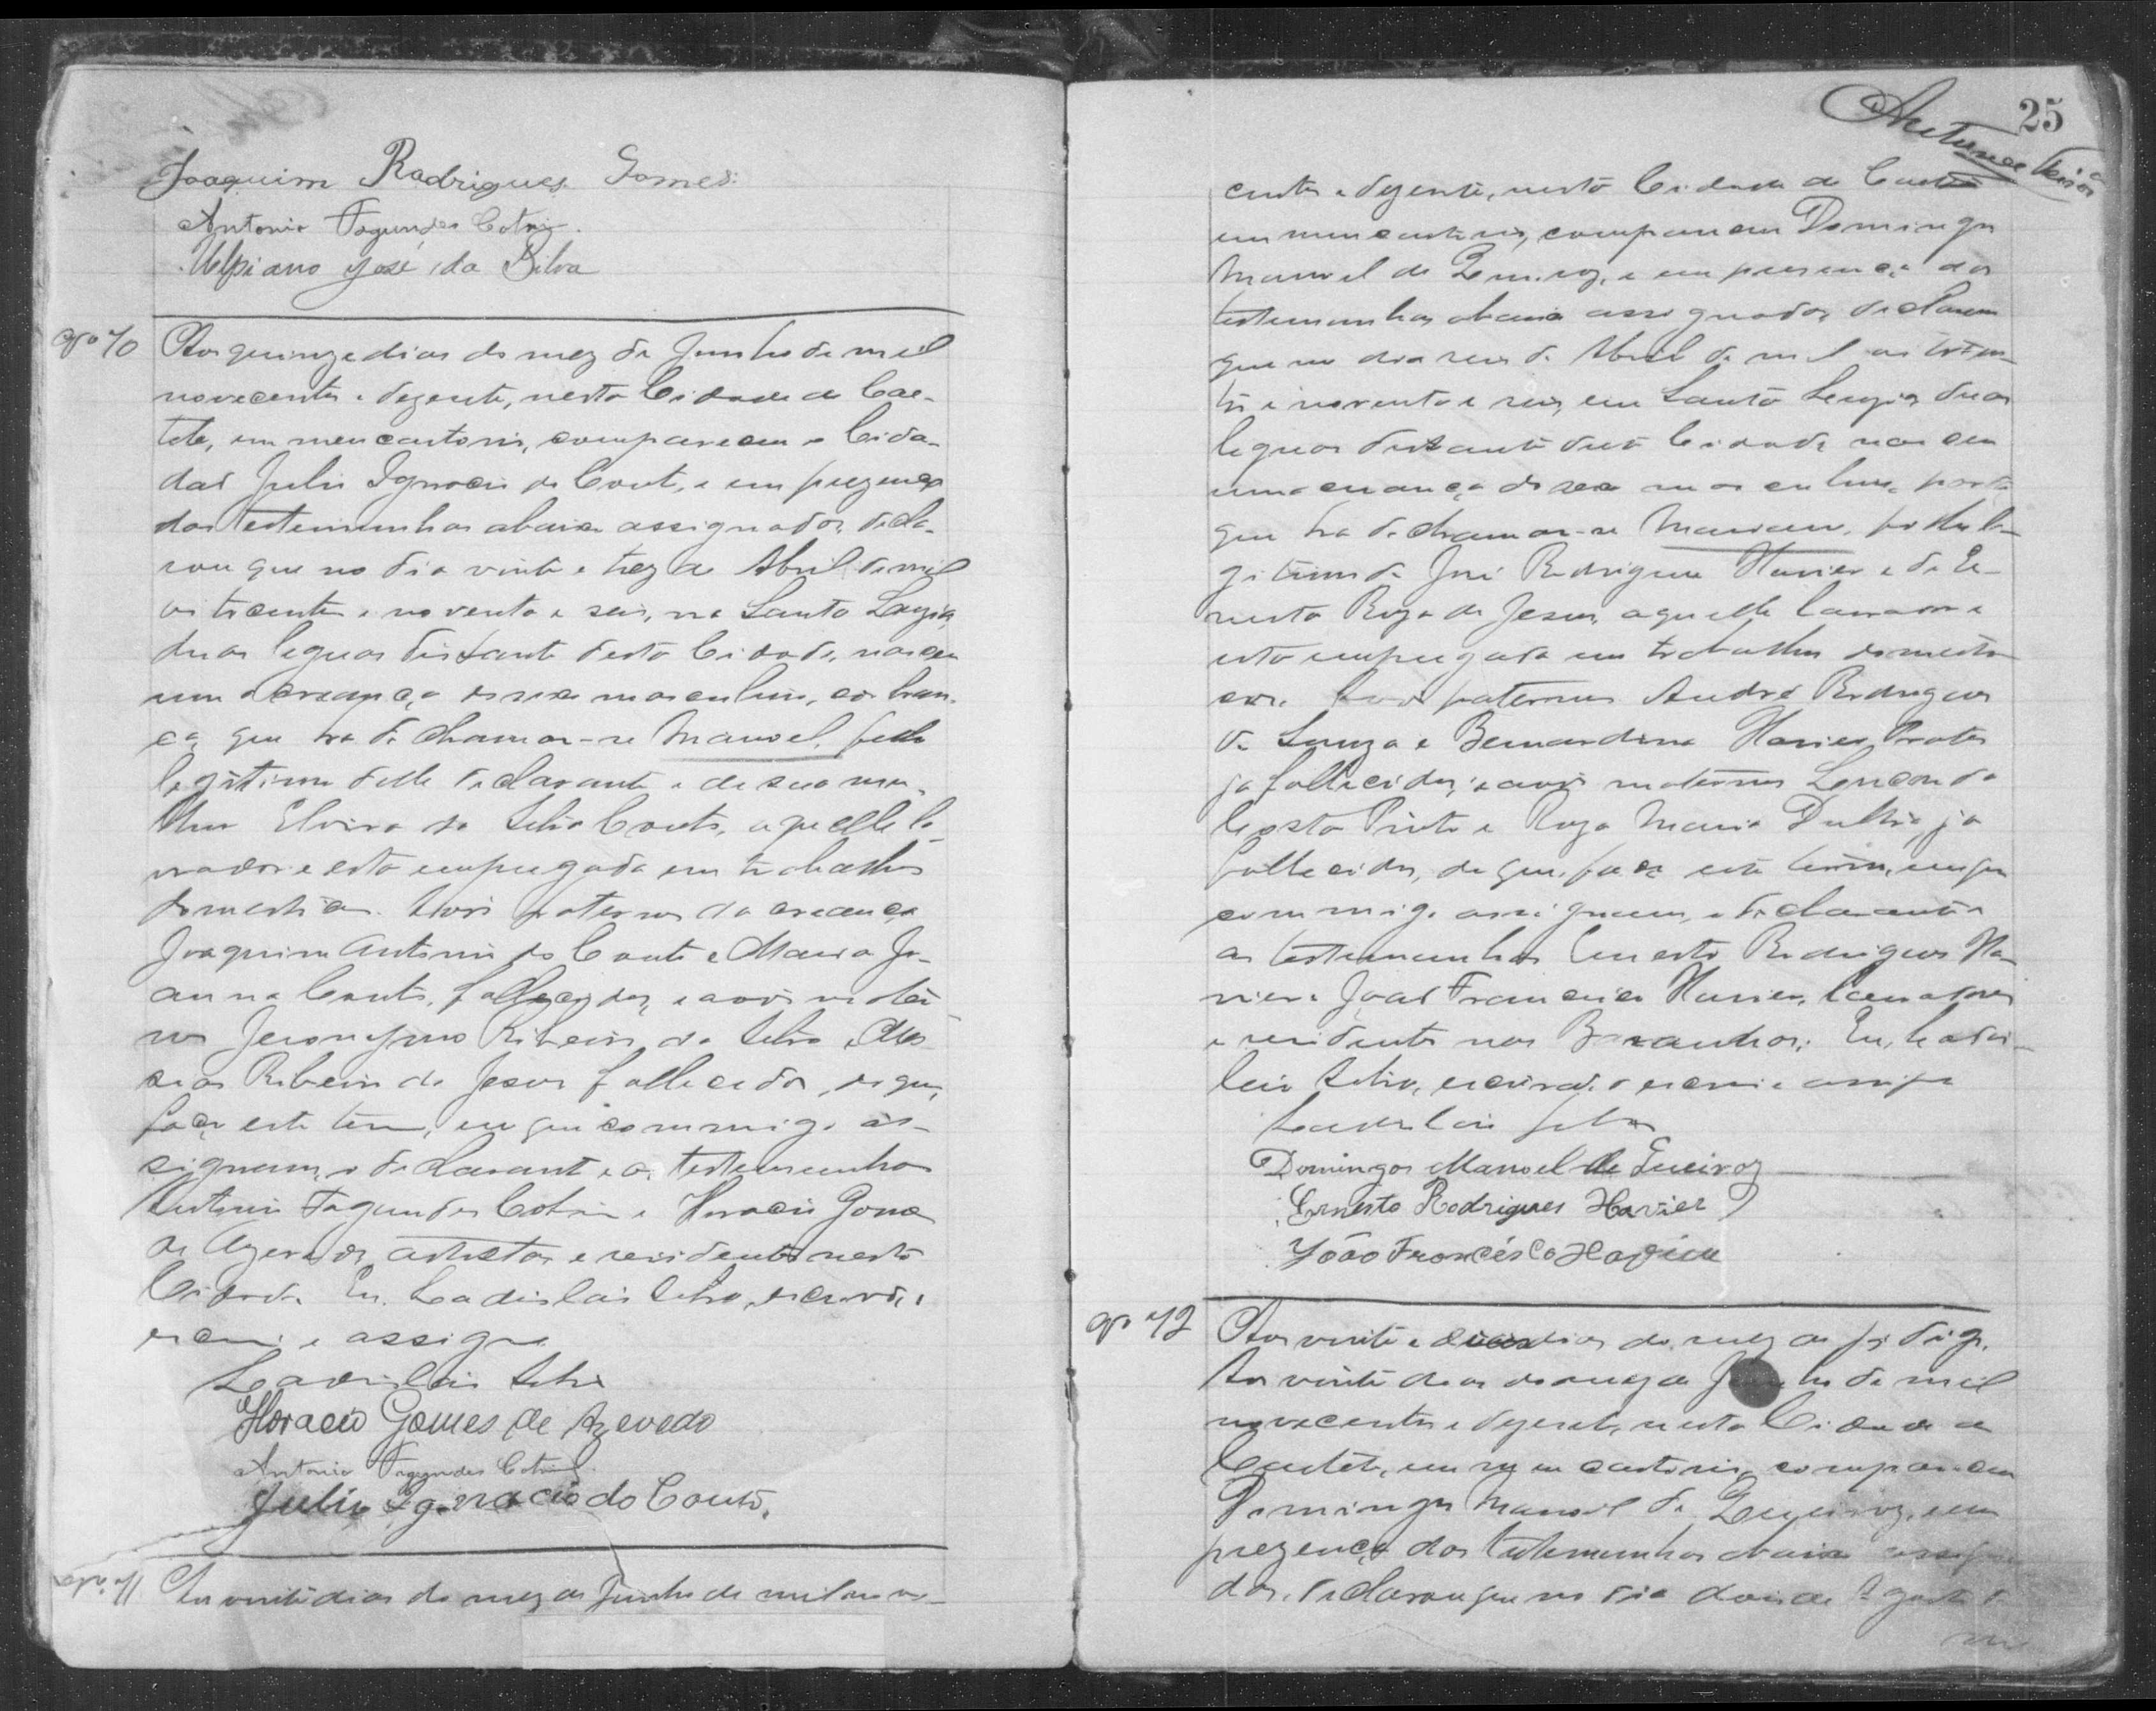 Joaquim Rodrigues Gomes.
Antonio Fagundes Cotrim.
Ulpiano José da Silva
Nº 70 Aos quinze dias do mez de Junho de mil
novecentos e dezesete, nesta Cidade de Cae-
teté, em meu cartorio, compareceu o Cida-
dão Julio Ignacio do Couto, e em prezença
das testemunhas abaixo assignadas, decla-
rou que no dia vinte e trez de Abril de mil
oitocentos e noventa e seis, na Santa Luzia,
duas leguas distante desta Cidade, nasceu
uma creança do sexo masculino, cor bran-
ca, que ha de chamar-se Manoel, filho
legitimo delle declarante e de sua mu-
lher Elvira da Silva Couto, aquelle la-
vrador e esta empregada em trabalhos
domesticos. Avós paternos da creança
Joaquim Antonio do Couto e Maria Jo-
anna Couto, fallecidos, e avós mater-
nos Jeronymo Ribeiro da Silva e
Ribeiro de Jesus fallecidos, do que,
faço este termo, em que commigo as-
signam, o declarante e as testemunhas
Antonio Fagundes Cotrim e Horacio Gomes
de Azevedo, artistas e residentes nesta
Cidade. Eu, Ladislau Silva, escrivão, o
escrevi e assigno
Ladislau Silva
Horacio Gomes de Azevedo
Antonio Fagundes Cotrim.
Julio Ignacio do Couto.
Nº 71 Aos vinte dias do mez de Junho de mil nove-
25
centos e dezesete, nesta Cidade de Caeteté
em meu cartorio, compareceu Domingos
Manoel de Queiroz, e em presença das
testemunhas abaixo assignadas, declarou
que no dia seis de Abril de mil oitocen-
tos e noventa e seis, em Santa Luzia, duas
leguas distante desta Cidade nasceu
uma creança do sexo masculino, parda
que ha de chamar-se Mariano, filho le-
gitimo de José Rodrigues Xavier e de Er-
nesta Roza de Jesus, aquelle lavrador e
esta empregada em trabalhos domesti-
cos. Avós paternos André Rodrigues
de Souza e Bernardina Xavier Prates
já fallecidos; e avós maternos
Costa Pinto e Roza Maria já
fallecidos, do que, faço este termo, em que
commigo assignam, o declarante e
as testemunhas Ernesto Rodrigues Xa-
vier e João Francisco Xavier, lavradores
e residentes nos Eu, Ladis-
lau Silva, escrivão, o escrevi e assigno
Ladislau Silva
Domingos Manoel de Queiroz
Ernesto Rodrigues Xavier
João Francisco Xavier
Nº 72 Aos vinte e dias do mez de digo.
Aos vinte dias do mez de Junho de mil
novecentos e dezesete, nesta Cidade de
Caeteté, em meu cartorio, compareceu
Domingos Manoel de Queiroz, e em
prezença das testemunhas abaixo assigna-
das, declarou que no dia dois de Agosto de
mil